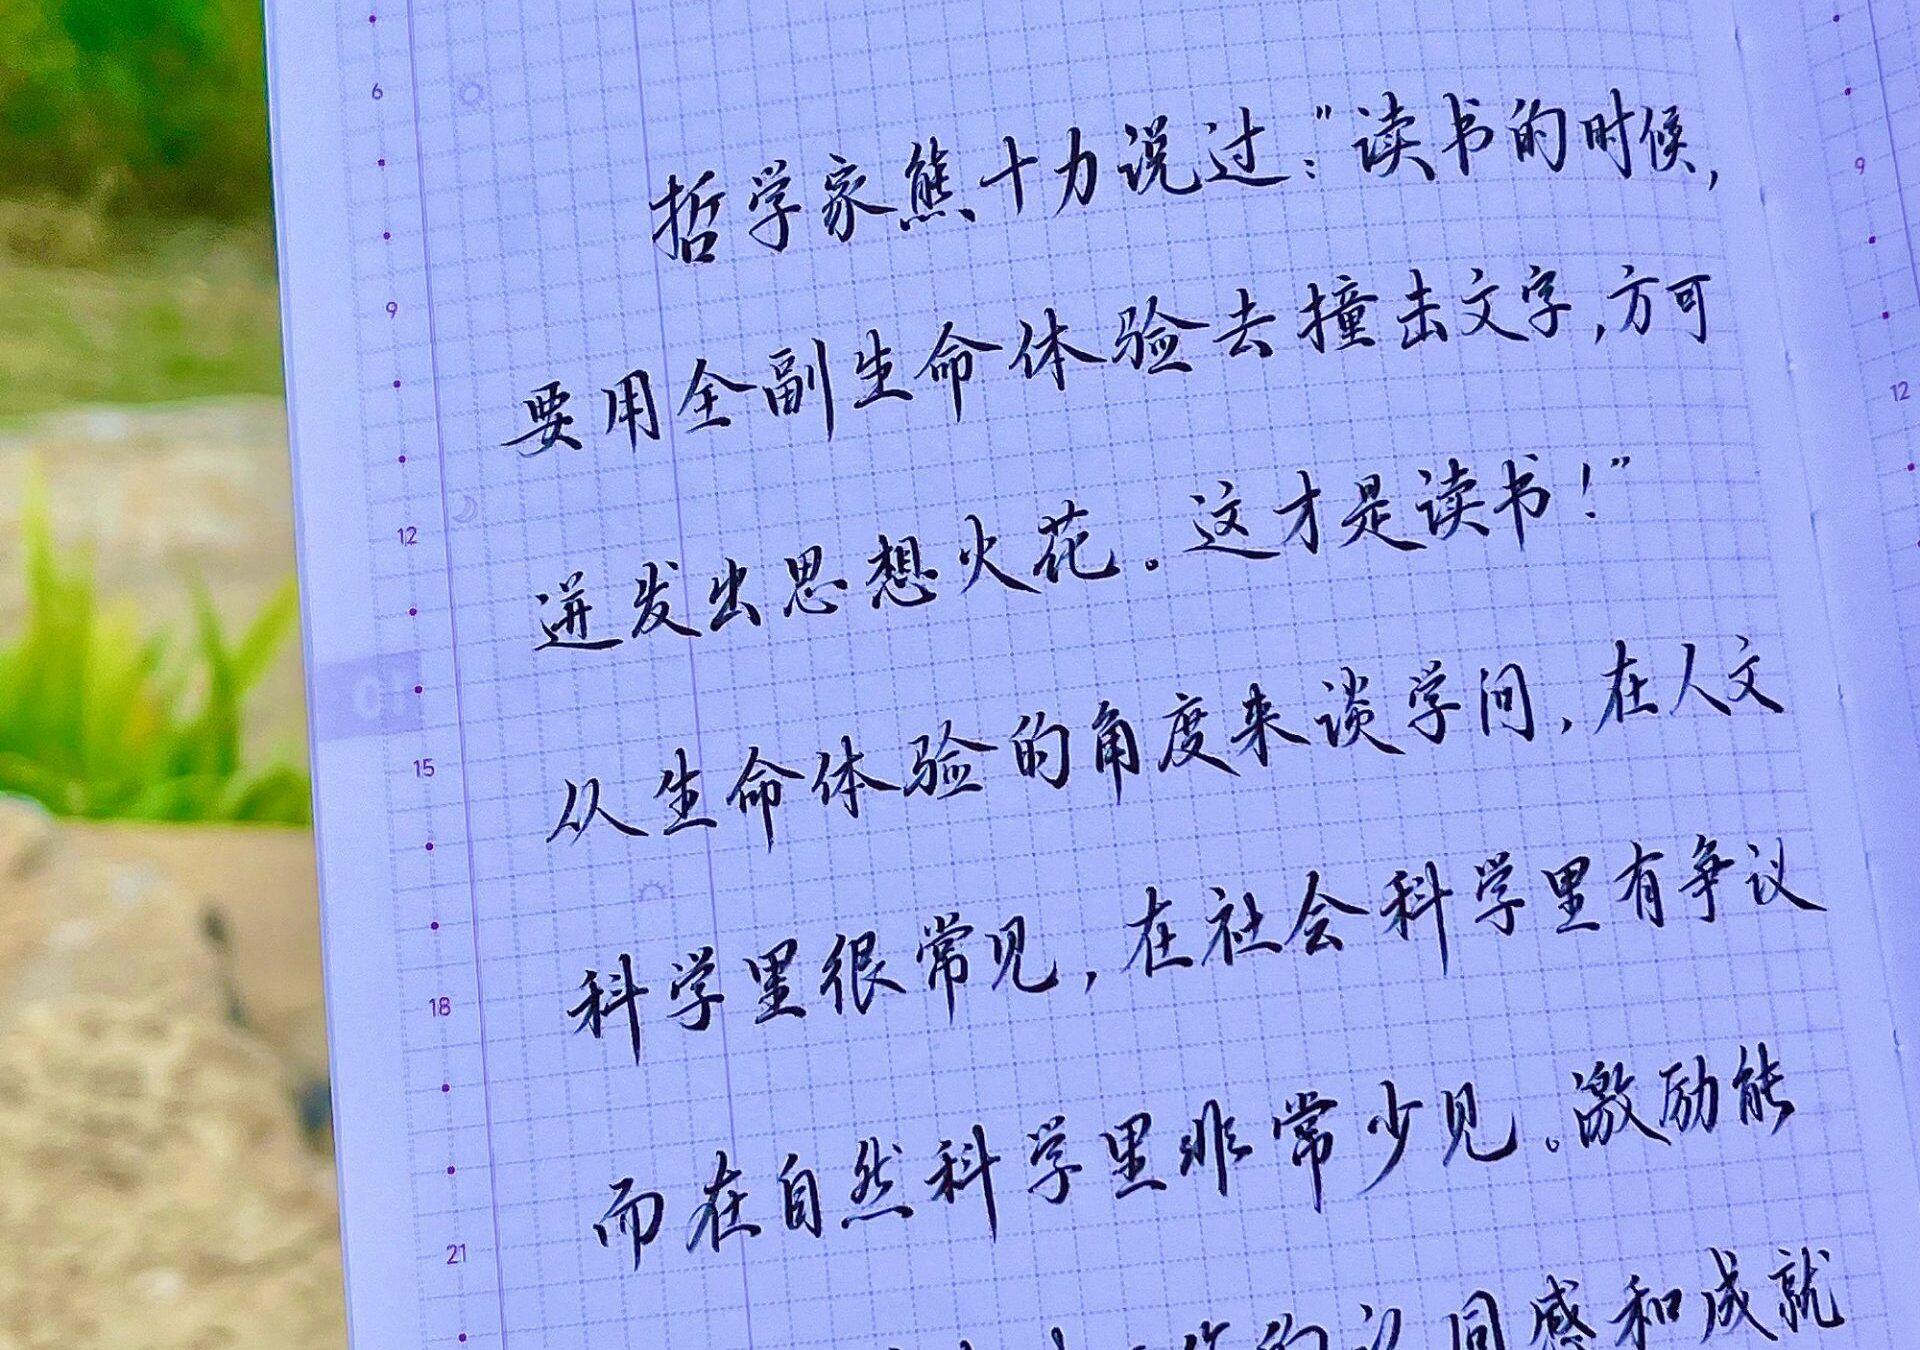 哲学家熊十力说过："读书的时候,
要用全副生命体验去撞击文字,方可
迸发出思想火花。这才是读书！"
从生命体验的角度来谈学问,在人文
科学里很常见,在社会科学里有争议
而在自然科学里非常少见。激励能
的认同感和成就
6
9
12
01
15
18
21
9
12